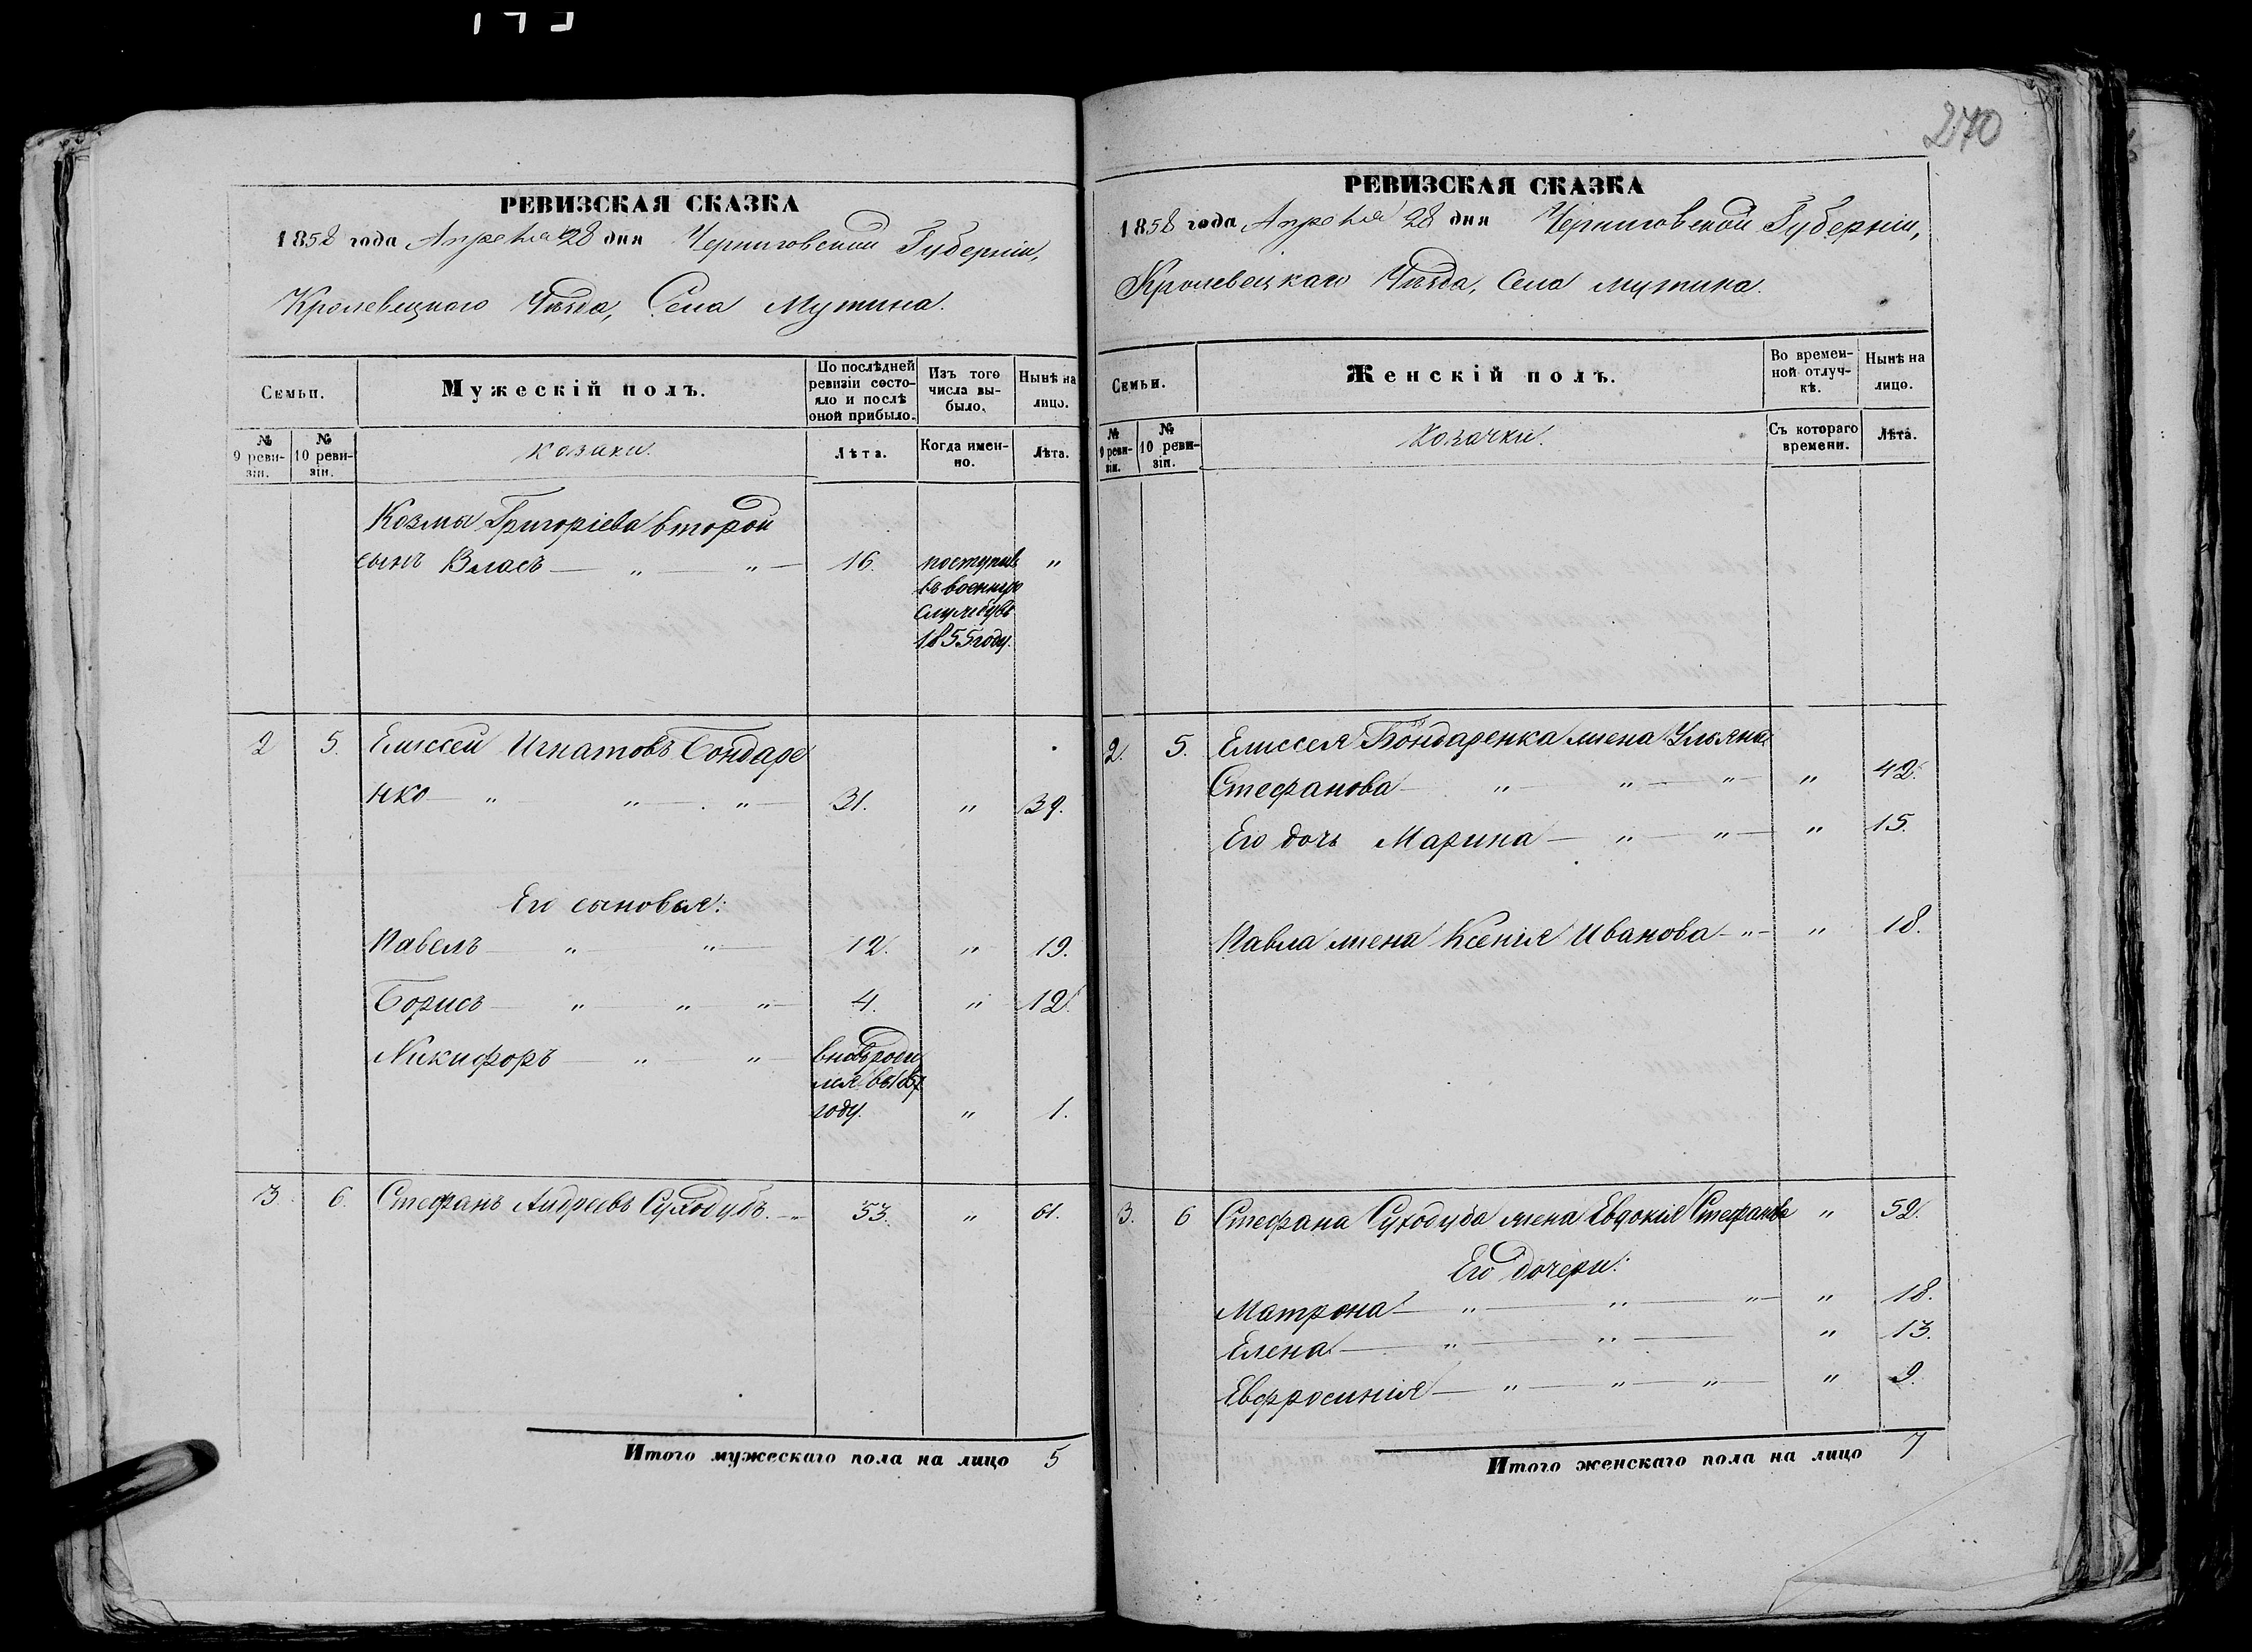 270
РЕВИЗСКАЯ СКАЗКА
1858 года Апреля 28 дня Черниговской Губерніи,
Кролевецкаго Уѣзда, Села Мутина.
Семьи.
Мужескій полъ.
По послѣдней
ревизіи состо-
яло и послѣ
оной прибыло.
Изъ того
числа вы-
было.
Нынѣ на
лицо.
№
9 реви-
зіи.
№
10 реви-
зіи.
козаки.
Лѣта.
Когда имен-
но.
Лѣта.
Козмы Григоріева второй
сынъ Власъ — „ — „ — 16. поступив „
въ военную
службу въ
1855 году.
2 5. Елисей Игнатовъ Бондаре
нко — „ „ — „ — 31. „ 39.
Его сыновья:
Павелъ — „ „ — 12. „ 19.
Борисъ — „ — „ — „ — 4. „ 12.
Никифоръ — „ — „ — вновь роди
лся въ 1857
году. „ 1.
3. 6. Стефанъ Андреевъ Суходубъ. — „ 53. „ 61.
Итого мужескаго пола на лицо 5
РЕВИЗСКАЯ СКАЗКА
1858 года Апреля 28 дня Черниговской Губерніи,
Кролевецкаго Уѣзда, Села Мутина.
Семьи.
Женскій полъ.
Во времен-
ной отлуч-
кѣ.
Нынѣ на
лицо.
№
9 реви-
зіи.
№
10 реви-
зіи.
Козачки.
Съ котораго
времени.
Лѣта.
2. 5. Елисея Бондаренка жена Ульяна
Стефанова — „ — „ — „ — „ 42.
Его дочь Марина — „ — „ — „ 15.
Павла жена Ксенія Иванова — „ — „ 18.
3. 6 Стефана Суходуба жена Евдокія Стефанова „ 52.
Его дочери:
Матрона — „ — „ — „ — „ 18.
Елена — „ — „ — „ 13.
Евфросинія — „ — „ — „ — „ 9.
Итого женскаго пола на лицо 7